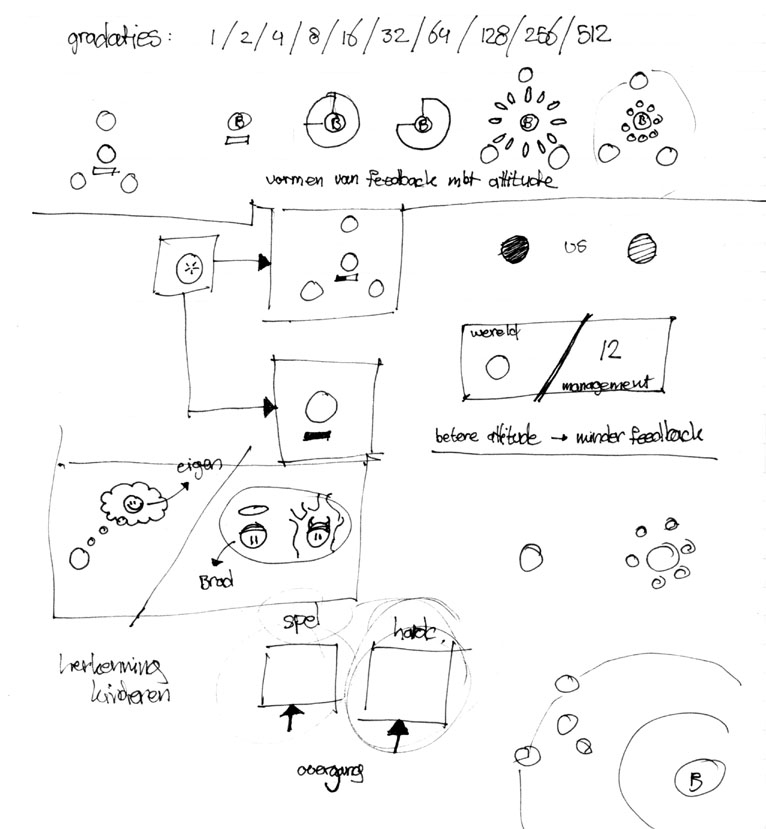 gradaties: 1/2/4/8/16/32/64/128/256/512
B B B B B
vormen van feedback mbt attitude
vs
wereld
12
management
betere attitude → minder feedback
eigen
Brad
spel
overgang
herkenning
kinderen
B